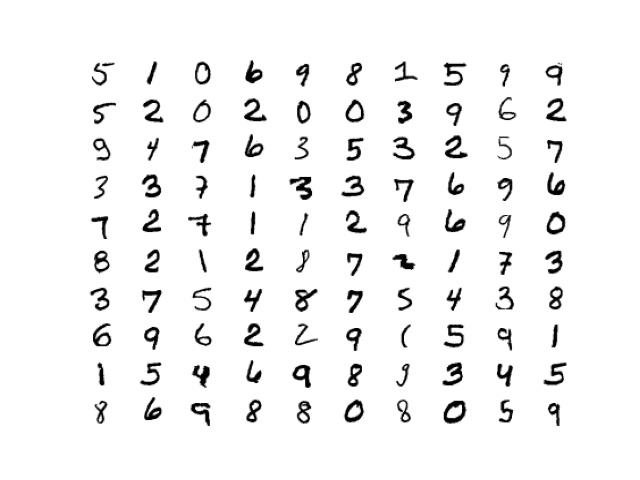 5 1 0 6 9 8 1 5 9 9
5 2 0 2 0 0 3 9 6 2
9 4 7 6 3 5 3 2 5 7
3 3 7 1 3 3 7 6 9 6
7 2 7 1 1 2 9 6 9 0
8 2 1 2 8 7 2 1 7 3
3 7 5 4 8 7 5 4 3 8
6 9 6 2 2 9 1 5 9 1
1 5 4 6 9 8 9 3 4 5
8 6 9 8 8 0 8 0 5 9